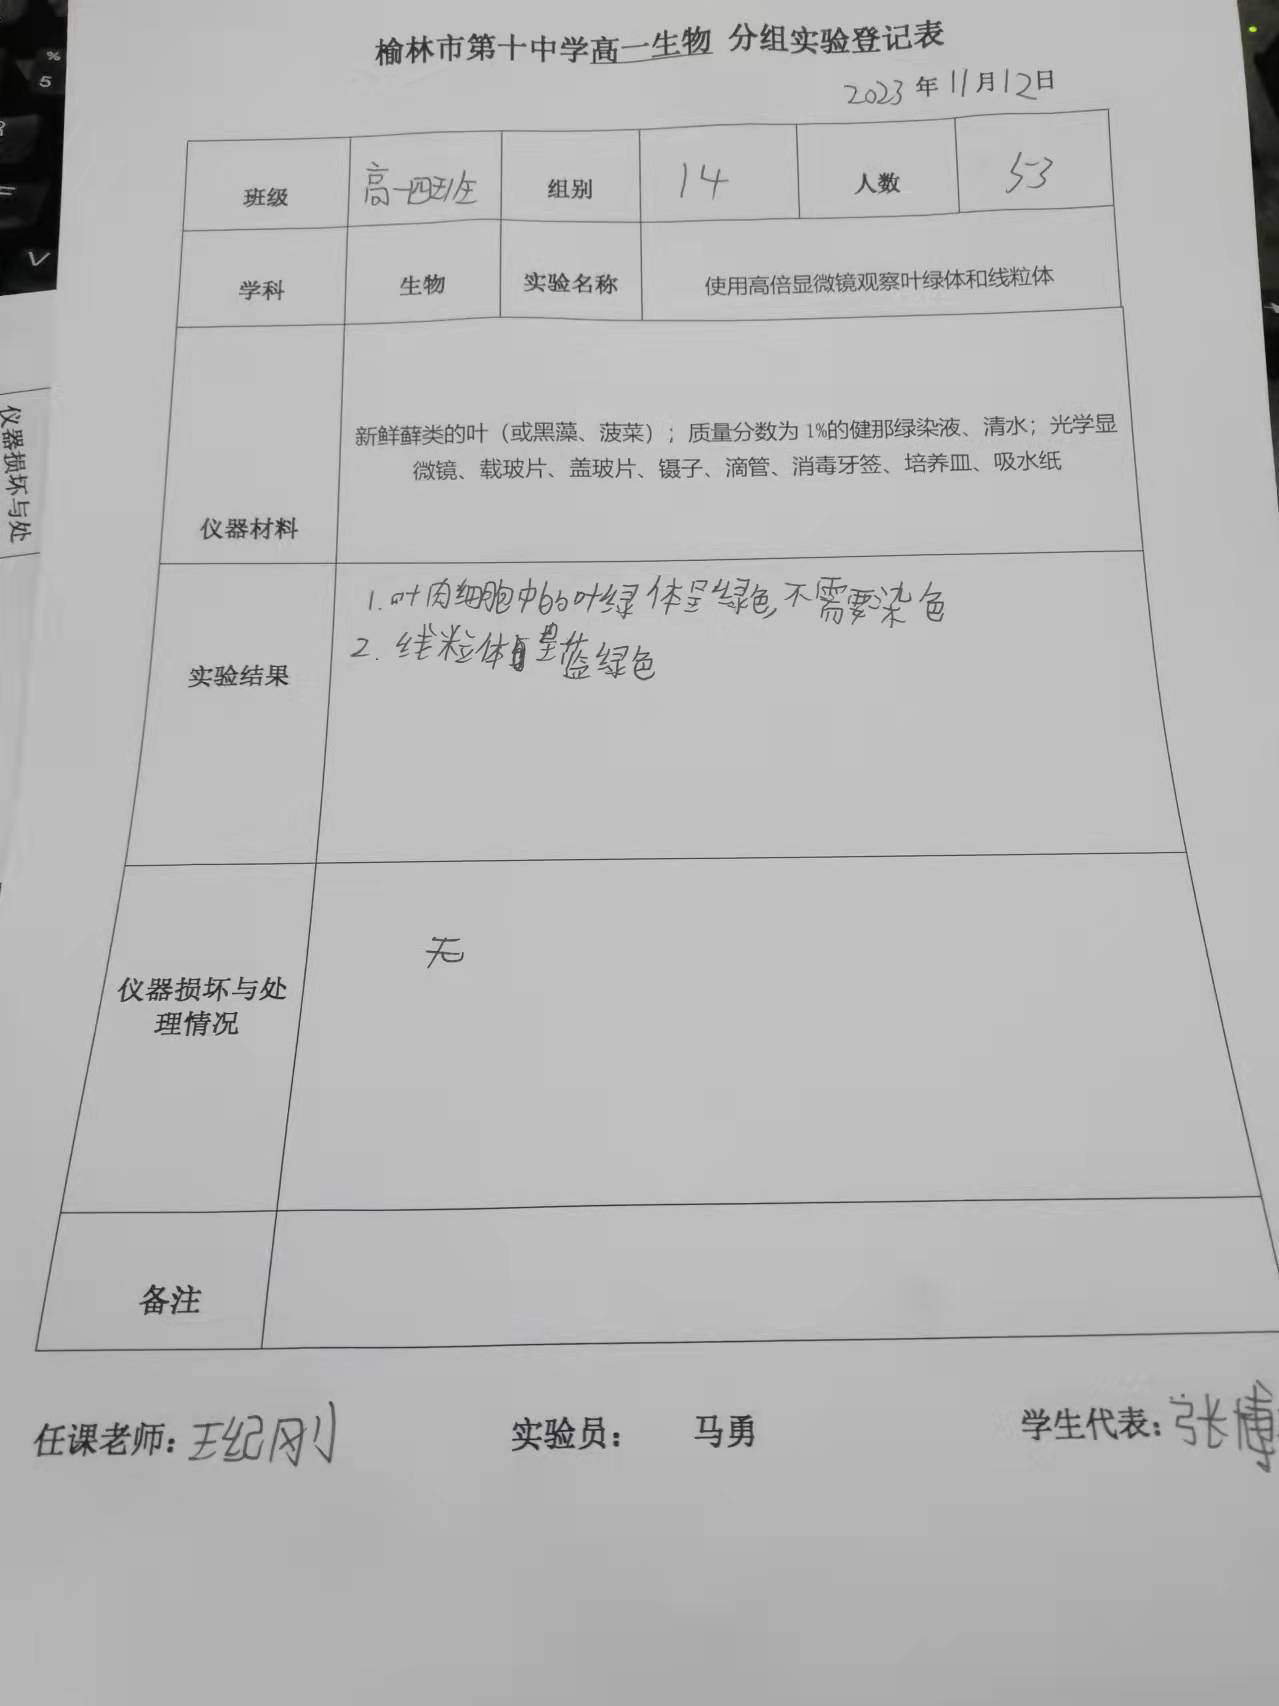 榆林市第十中学高一生物 分组实验登记表
2023 年 11 月 12 日
班级 高一四班 组别 14 人数 53
学科 生物 实验名称 使用高倍显微镜观察叶绿体和线粒体
仪器材料
新鲜藓类的叶（或黑藻、菠菜）；质量分数为 1%的健那绿染液、清水；光学显
微镜、载玻片、盖玻片、镊子、滴管、消毒牙签、培养皿、吸水纸
实验结果
1.叶肉细胞中的叶绿体呈绿色,不需要染色
2.线粒体呈蓝绿色
仪器损坏与处
理情况
无
备注
任课老师：王纪刚 实验员： 马勇 学生代表：张博
仪器损坏与处
%
5
V